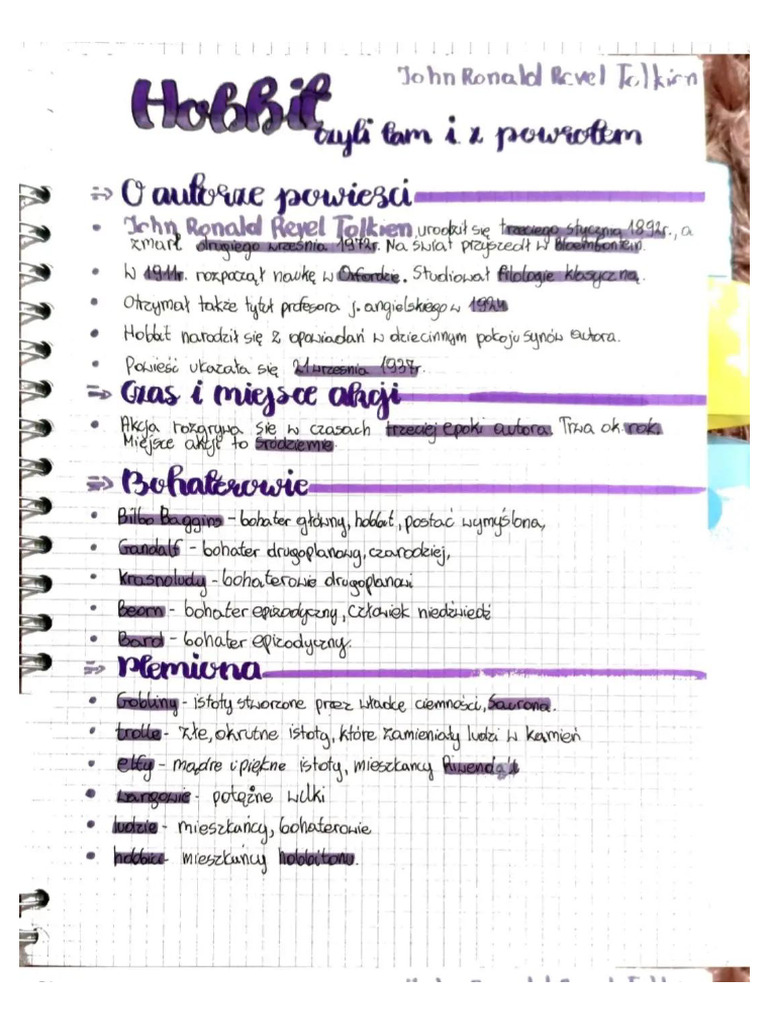 John Ronald Revel Tolkien
Hobbit
czyli tam i z powrotem
=> O autorze powieści
• John Ronald Revel Tolkien, urodził się trzeciego stycznia 1892r., a
zmarł drugiego września 1972r. Na świat przyszedł w Bloemfontein.
• W 1911r. rozpoczął naukę w Oxfordzie. Studiował filologie klasyczną.
• Otrzymał także tytuł profesora j. angielskiego w 1924
• Hobbit narodził się z opowiadań w dziecinnym pokoju synów autora.
• Powieść ukazała się 21 września 1937r.
=> Czas i miejsce akcji
• Akcja rozgrywa się w czasach trzeciej epoki autora. Trwa ok. rok.
Miejsce akcji to Śródziemie.
=> Bohaterowie
• Bilbo Baggins - bohater główny, hobbit, postać wymyślona,
• Gandalf - bohater drugoplanowy, czarodziej,
• Krasnoludy - bohaterowie drugoplanowi
• Beorn - bohater epizodyczny, człowiek niedźwiedź
• Bard - bohater epizodyczny.
=> Plemiona
• Gobliny - istoty stworzone przez władcę ciemności, Saurona.
• trolle - złe, okrutne istoty, które zamieniały ludzi w kamień
• elfy - mądre i piękne istoty, mieszkańcy Riwendal
• wargowie - potężne wilki
• ludzie - mieszkańcy, bohaterowie
• hobbici - mieszkańcy hobbitonu.